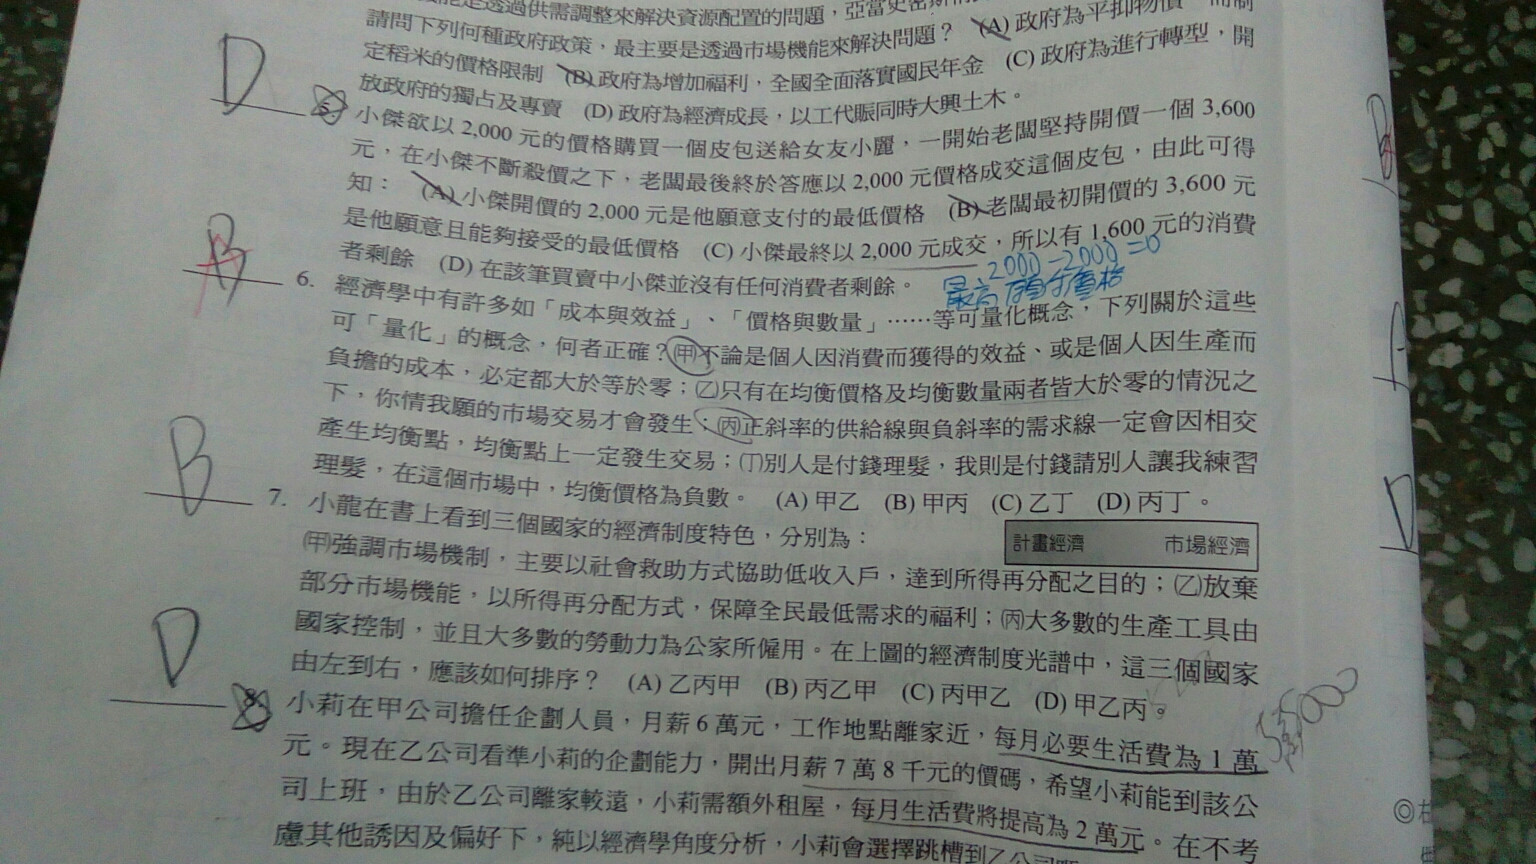 能是透過供需調整來解決資源配置的問題，亞當史密斯
請問下列何種政府政策，最主要是透過市場機能來解決問題？ (A) 政府為平抑物價
定稻米的價格限制 (B) 政府為增加福利，全國全面落實國民年金 (C) 政府為進行轉型，開
放政府的獨占及專賣 (D) 政府為經濟成長，以工代賑同時大興土木。
D 5. 小傑欲以 2,000 元的價格購買一個皮包送給女友小麗，一開始老闆堅持開價一個 3,600
元，在小傑不斷殺價之下，老闆最後終於答應以 2,000 元價格成交這個皮包，由此可得
知： (A) 小傑開價的 2,000 元是他願意支付的最低價格 (B) 老闆最初開價的 3,600 元
是他願意且能夠接受的最低價格 (C) 小傑最終以 2,000 元成交，所以有 1,600 元的消費
者剩餘 (D) 在該筆買賣中小傑並沒有任何消費者剩餘。
2000-2000=0
最高 價格
B 6. 經濟學中有許多如「成本與效益」、「價格與數量」……等可量化概念，下列關於這些
可「量化」的概念，何者正確？㈙不論是個人因消費而獲得的效益、或是個人因生產而
負擔的成本，必定都大於等於零；㈚只有在均衡價格及均衡數量兩者皆大於零的情況之
下，你情我願的市場交易才會發生；㈛正斜率的供給線與負斜率的需求線一定會因相交
產生均衡點，均衡點上一定發生交易；㈜別人是付錢理髮，我則是付錢請別人讓我練習
理髮，在這個市場中，均衡價格為負數。 (A) 甲乙 (B) 甲丙 (C) 乙丁 (D) 丙丁。
B 7. 小龍在書上看到三個國家的經濟制度特色，分別為：
計畫經濟 市場經濟
㈙強調市場機制，主要以社會救助方式協助低收入戶，達到所得再分配之目的；㈚放棄
部分市場機能，以所得再分配方式，保障全民最低需求的福利；㈛大多數的生產工具由
國家控制，並且大多數的勞動力為公家所僱用。在上圖的經濟制度光譜中，這三個國家
由左到右，應該如何排序？ (A) 乙丙甲 (B) 丙乙甲 (C) 丙甲乙 (D) 甲乙丙。
D 8. 小莉在甲公司擔任企劃人員，月薪 6 萬元，工作地點離家近，每月必要生活費為 1 萬
元。現在乙公司看準小莉的企劃能力，開出月薪 7 萬 8 千元的價碼，希望小莉能到該公
司上班，由於乙公司離家較遠，小莉需額外租屋，每月生活費將提高為 2 萬元。在不考
慮其他誘因及偏好下，純以經濟學角度分析，小莉會選擇跳槽到乙公司
B
A
D